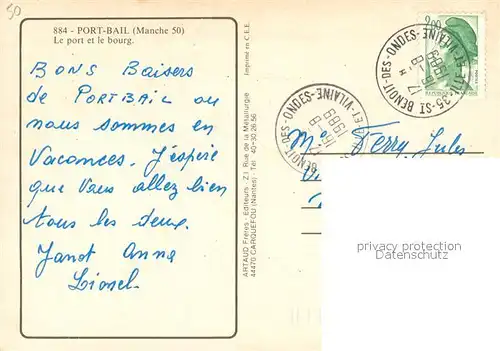 50
884 - PORT-BAIL (Manche 50)
Le port et le bourg.
BONS Baisers
de PORTBAIL ou
nous sommes en
Vacances. J'espère
que Vous allez bien
tous les deux.
Janot Anna
Lionel.
Imprimé en C.E.E.
ARTAUD Frères - Editeurs - Z.I. Rue de la Métallurgie
44470 CARQUEFOU (Nantes) - Tél. 40-30-26-56
BENOIT-DES-ONDES
ET-VILAINE
1989
35-ST BENOIT-DES-ONDES
ILLE-ET-VILAINE
17-8
1989
2,00
Ferry Jules
privacy protection
watermark